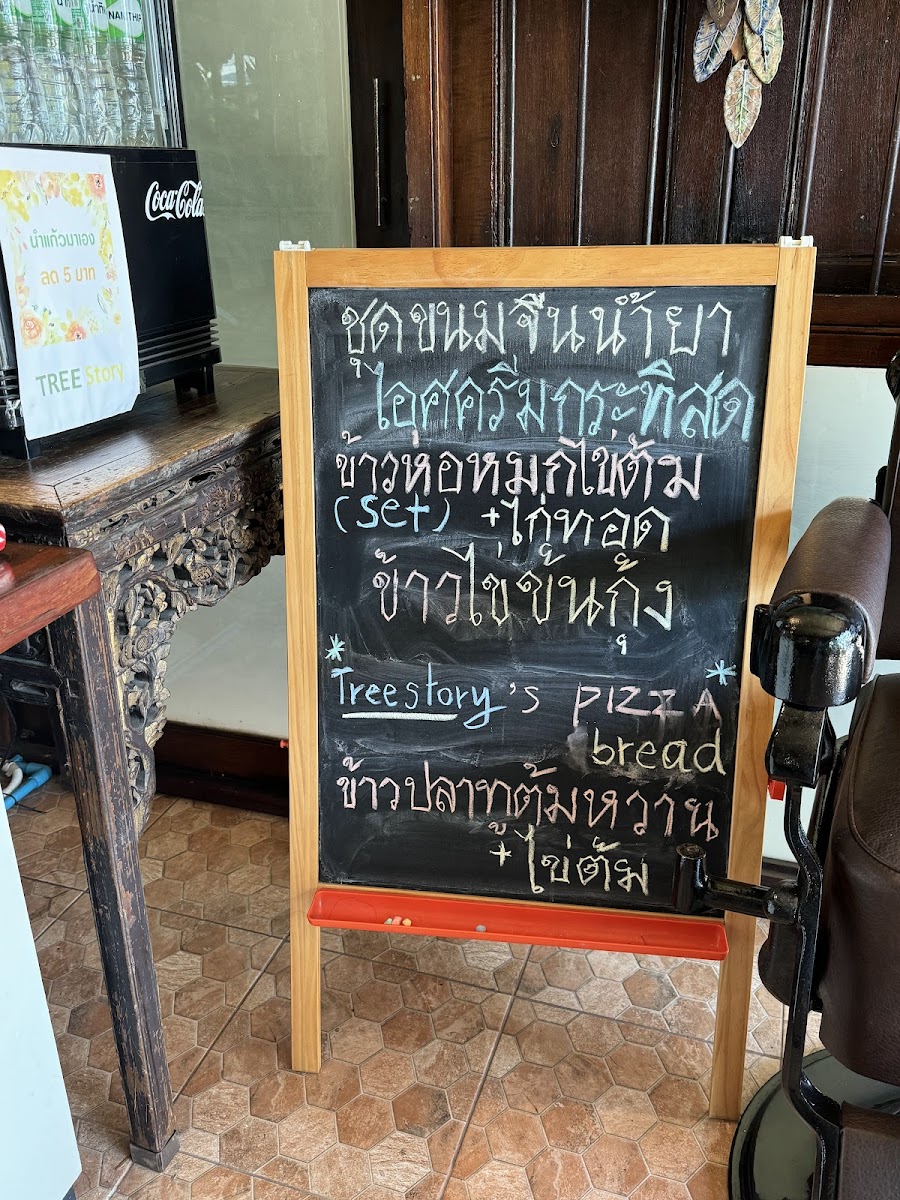 NAMTHIP
Coca-Cola
นำแก้วมาเอง
ลด 5 บาท
TREE Story
ชุดขนมจีนน้ำยา
ไอศครีมกระทิสด
ข้าวห่อหมกไข่ต้ม
(set) +ไก่ทอด
ข้าวไข่ข้นกุ้ง
*Treestory's PIZZA*
bread
ข้าวปลาทูต้มหวาน
+ไข่ต้ม